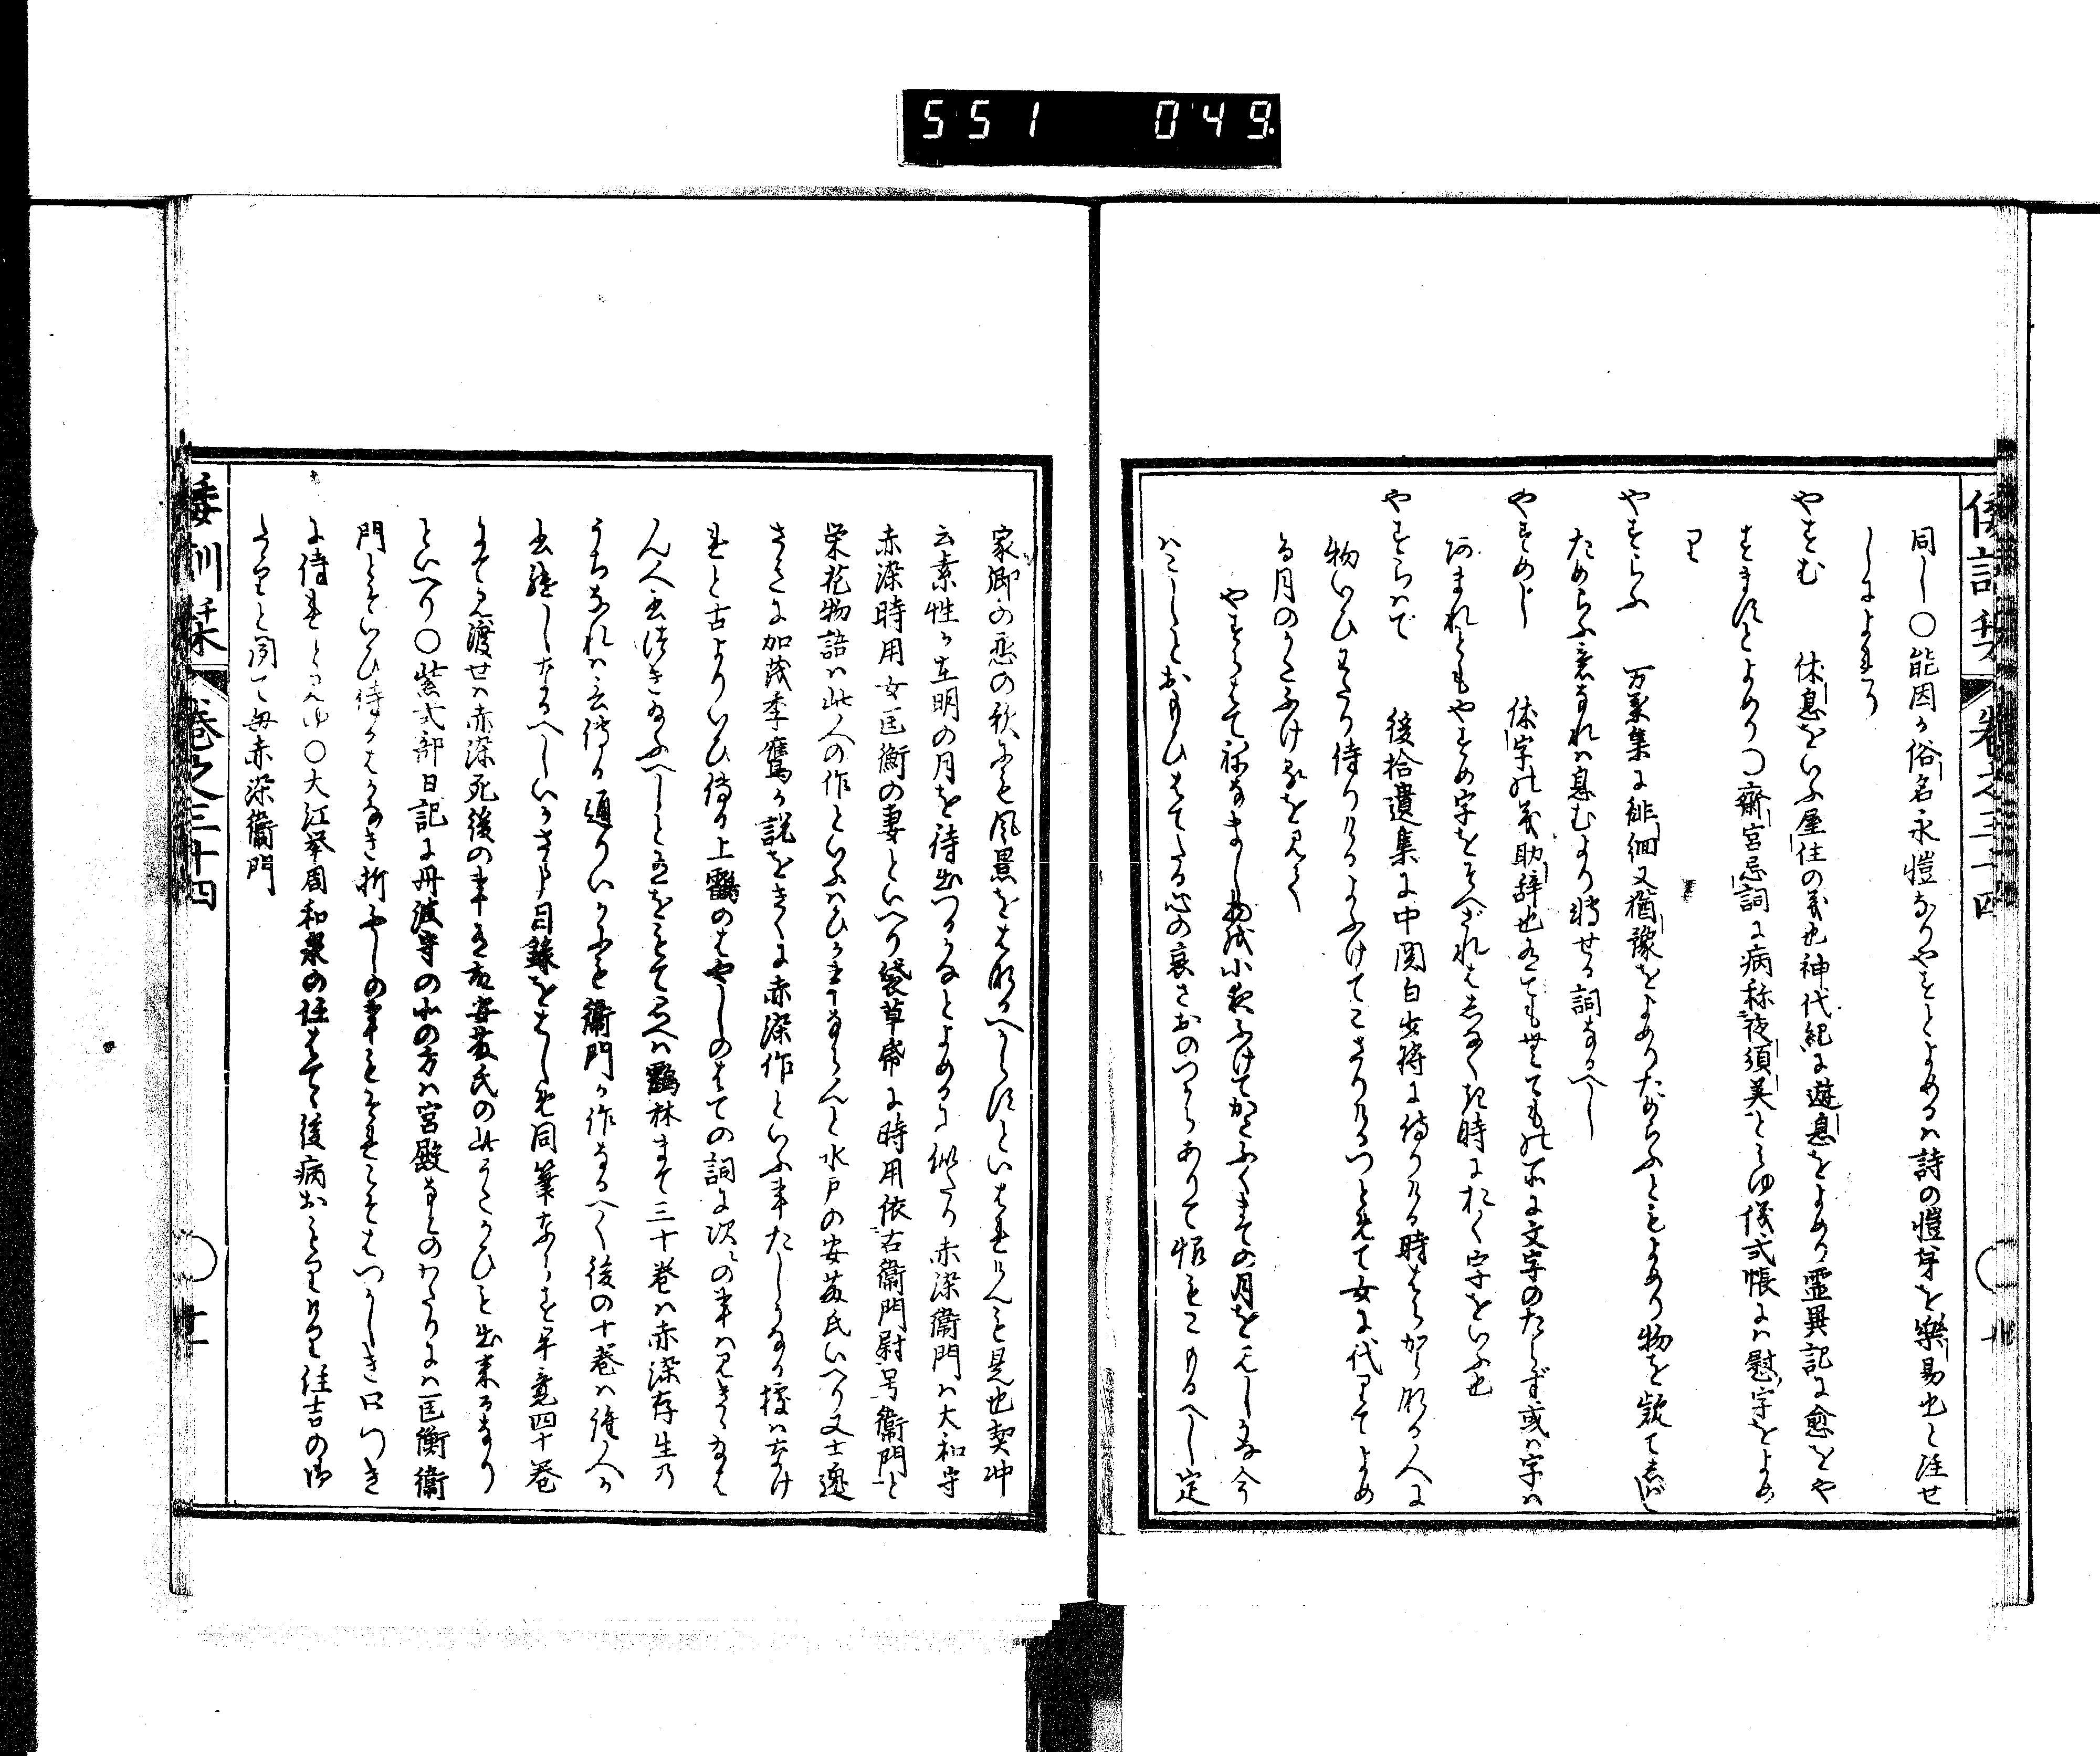 551 049
同し〇能因か俗名永愷なりやすとよめるハ詩の愷弟を樂易也と注せ
しによれり
やすむ 休息をいふ屋住の義也神代紀に遊息をよめり霊異記に愈をや
すまるとよめり〇齋宮忌詞に病称夜須美とみゆ儀式帳にハ慰字をよめ
り
やすらふ 万葉集に徘徊又猶豫をよめりためらふともよめり物を歇てしばし
ためらふ意なれハ息むより轉せる詞なるへし
やすめじ 休字の義助辞也有ても無てもの所に文字のたらず或ハ字ハ
あまれともやすめ字をそへざれはしなく
やすらハで 後拾遺集に中関白少将に侍りける時はらからなる人に
物いひわたり侍りけるよふけてこさりけるつとめて女に代りてよめ
る月のかたふけるを見て
やすらはて祢なまし物を小夜ふけてかたふくまての月をみしかな今
ハこしとおもひはてたる心の哀さおのつからありて恨もこもるへし定
家卿の恋の歌にも風景をはなるへからすといはれけんも是也契冲
云素性か在明の月を待出つるかなとよめるに似たり赤染衛門ハ大和守
赤染時用女匡衡の妻といへり袋草帋に時用依右衛門尉号衛門と
栄花物語ハ此人の作といふハひか事ならんと水戸の安藤氏いへり又士逸
さきに加茂季鷹か説をきくに赤染作といふ事たしかなる據ハなけ
れと古よりいひ傳る上鶴のはやしのはての詞に次々の事ハ見きゝ
ん人書つきたまふへしと有をもて思へハ鶴林まて三十巻ハ赤染存生乃
うちなれハ云傳る通りいかにも衛門か作なるへく後の十巻ハ誰人か
書継したるへし
見渡せハ赤染死後の事も有安藤氏の此うたかひも出来るなり
といへり〇紫式部日記に丹波守の北の方ハ宮殿なとのわたりにハ匡衡衛
門とそいひ侍るはかなき折ふしの事もそれこそはつかしき口つき
に侍れとみゆ〇大江挙周和泉の任はてゝ後病おもりけり住吉の御
たゝりと聞て母赤染衛門
倭訓栞 巻之三十四
倭訓栞 巻之三十四